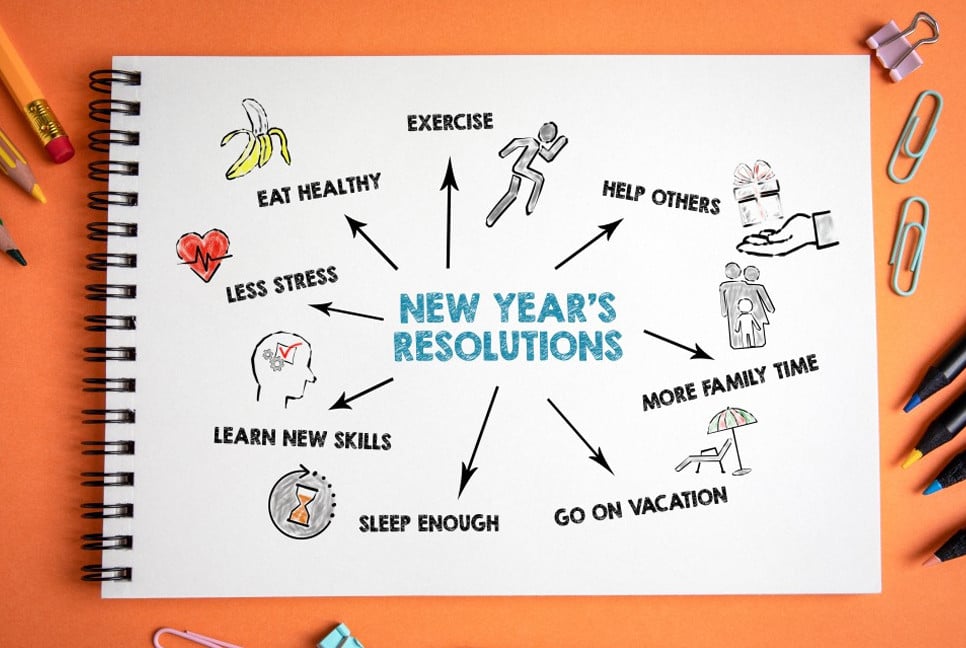 EXERCISE
EAT HEALTHY
HELP OTHERS
LESS STRESS
NEW YEAR'S
RESOLUTIONS
MORE FAMILY TIME
LEARN NEW SKILLS
GO ON VACATION
SLEEP ENOUGH